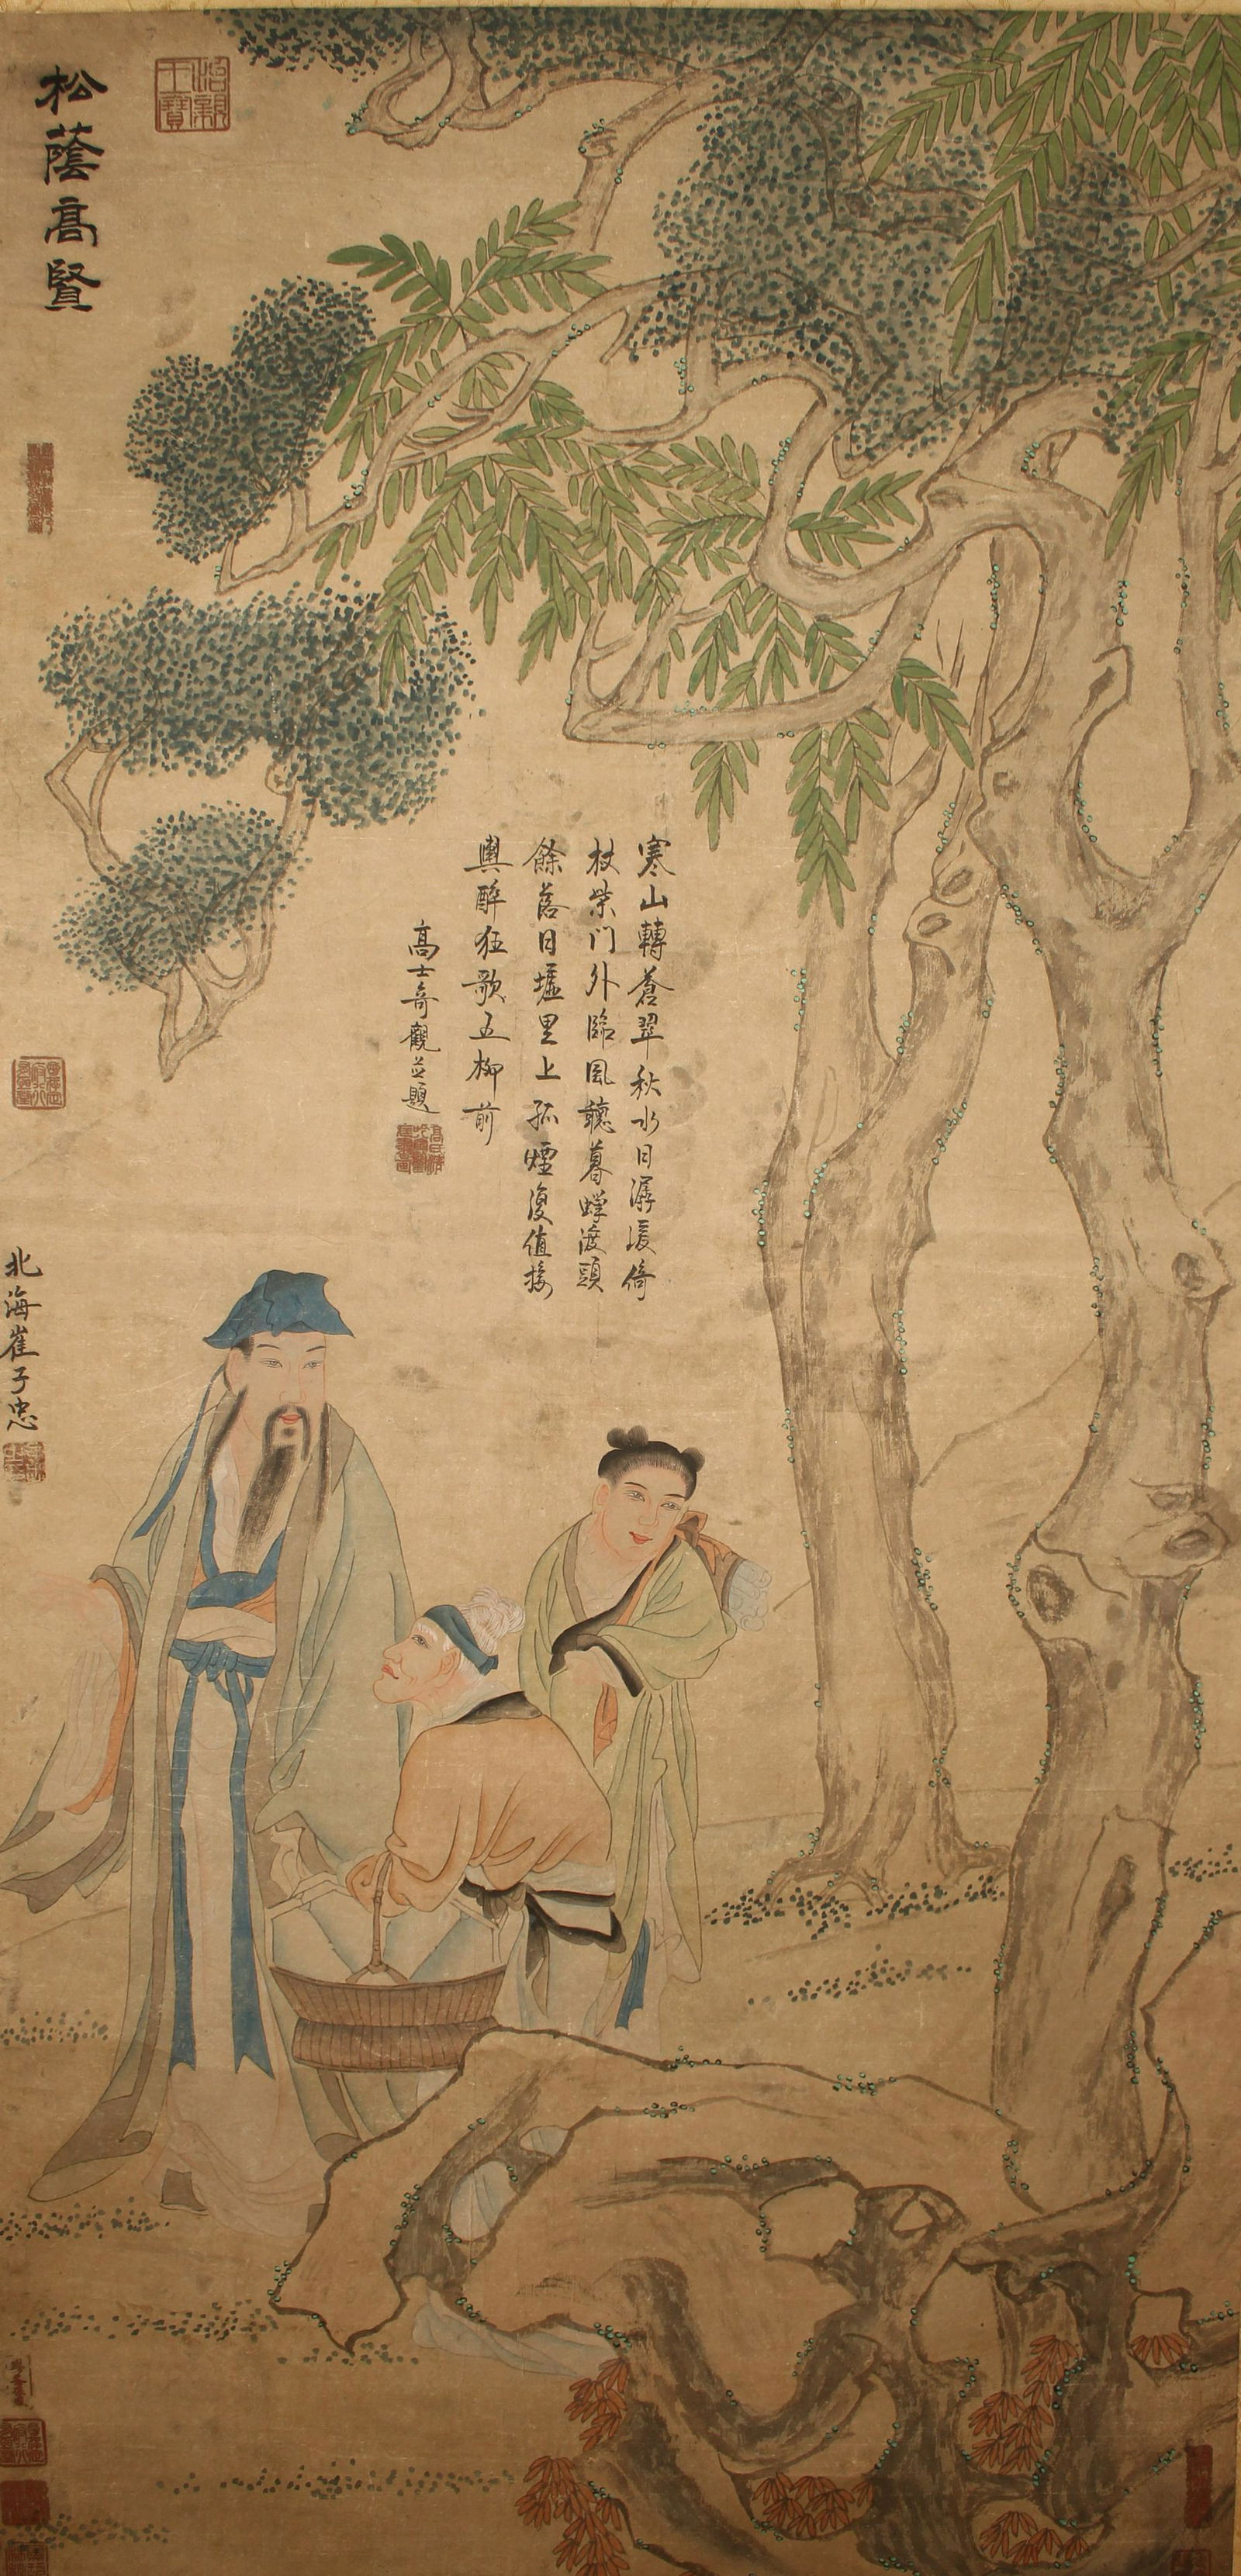 寒山轉蒼翠秋水日潺湲倚
杖柴门外臨風聽暮蟬渡頭
餘落日墟里上孤煙復值接
輿醉狂歌五柳前
高士奇觀並題
松蔭高賢
北海崔子忠